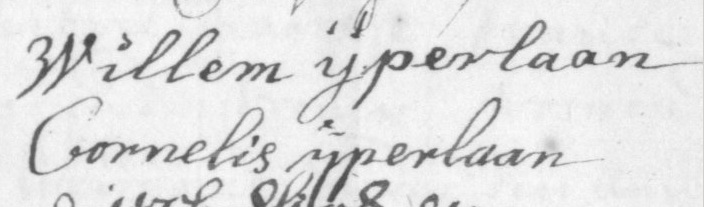 Willem ÿperlaan
Cornelis ÿperlaan